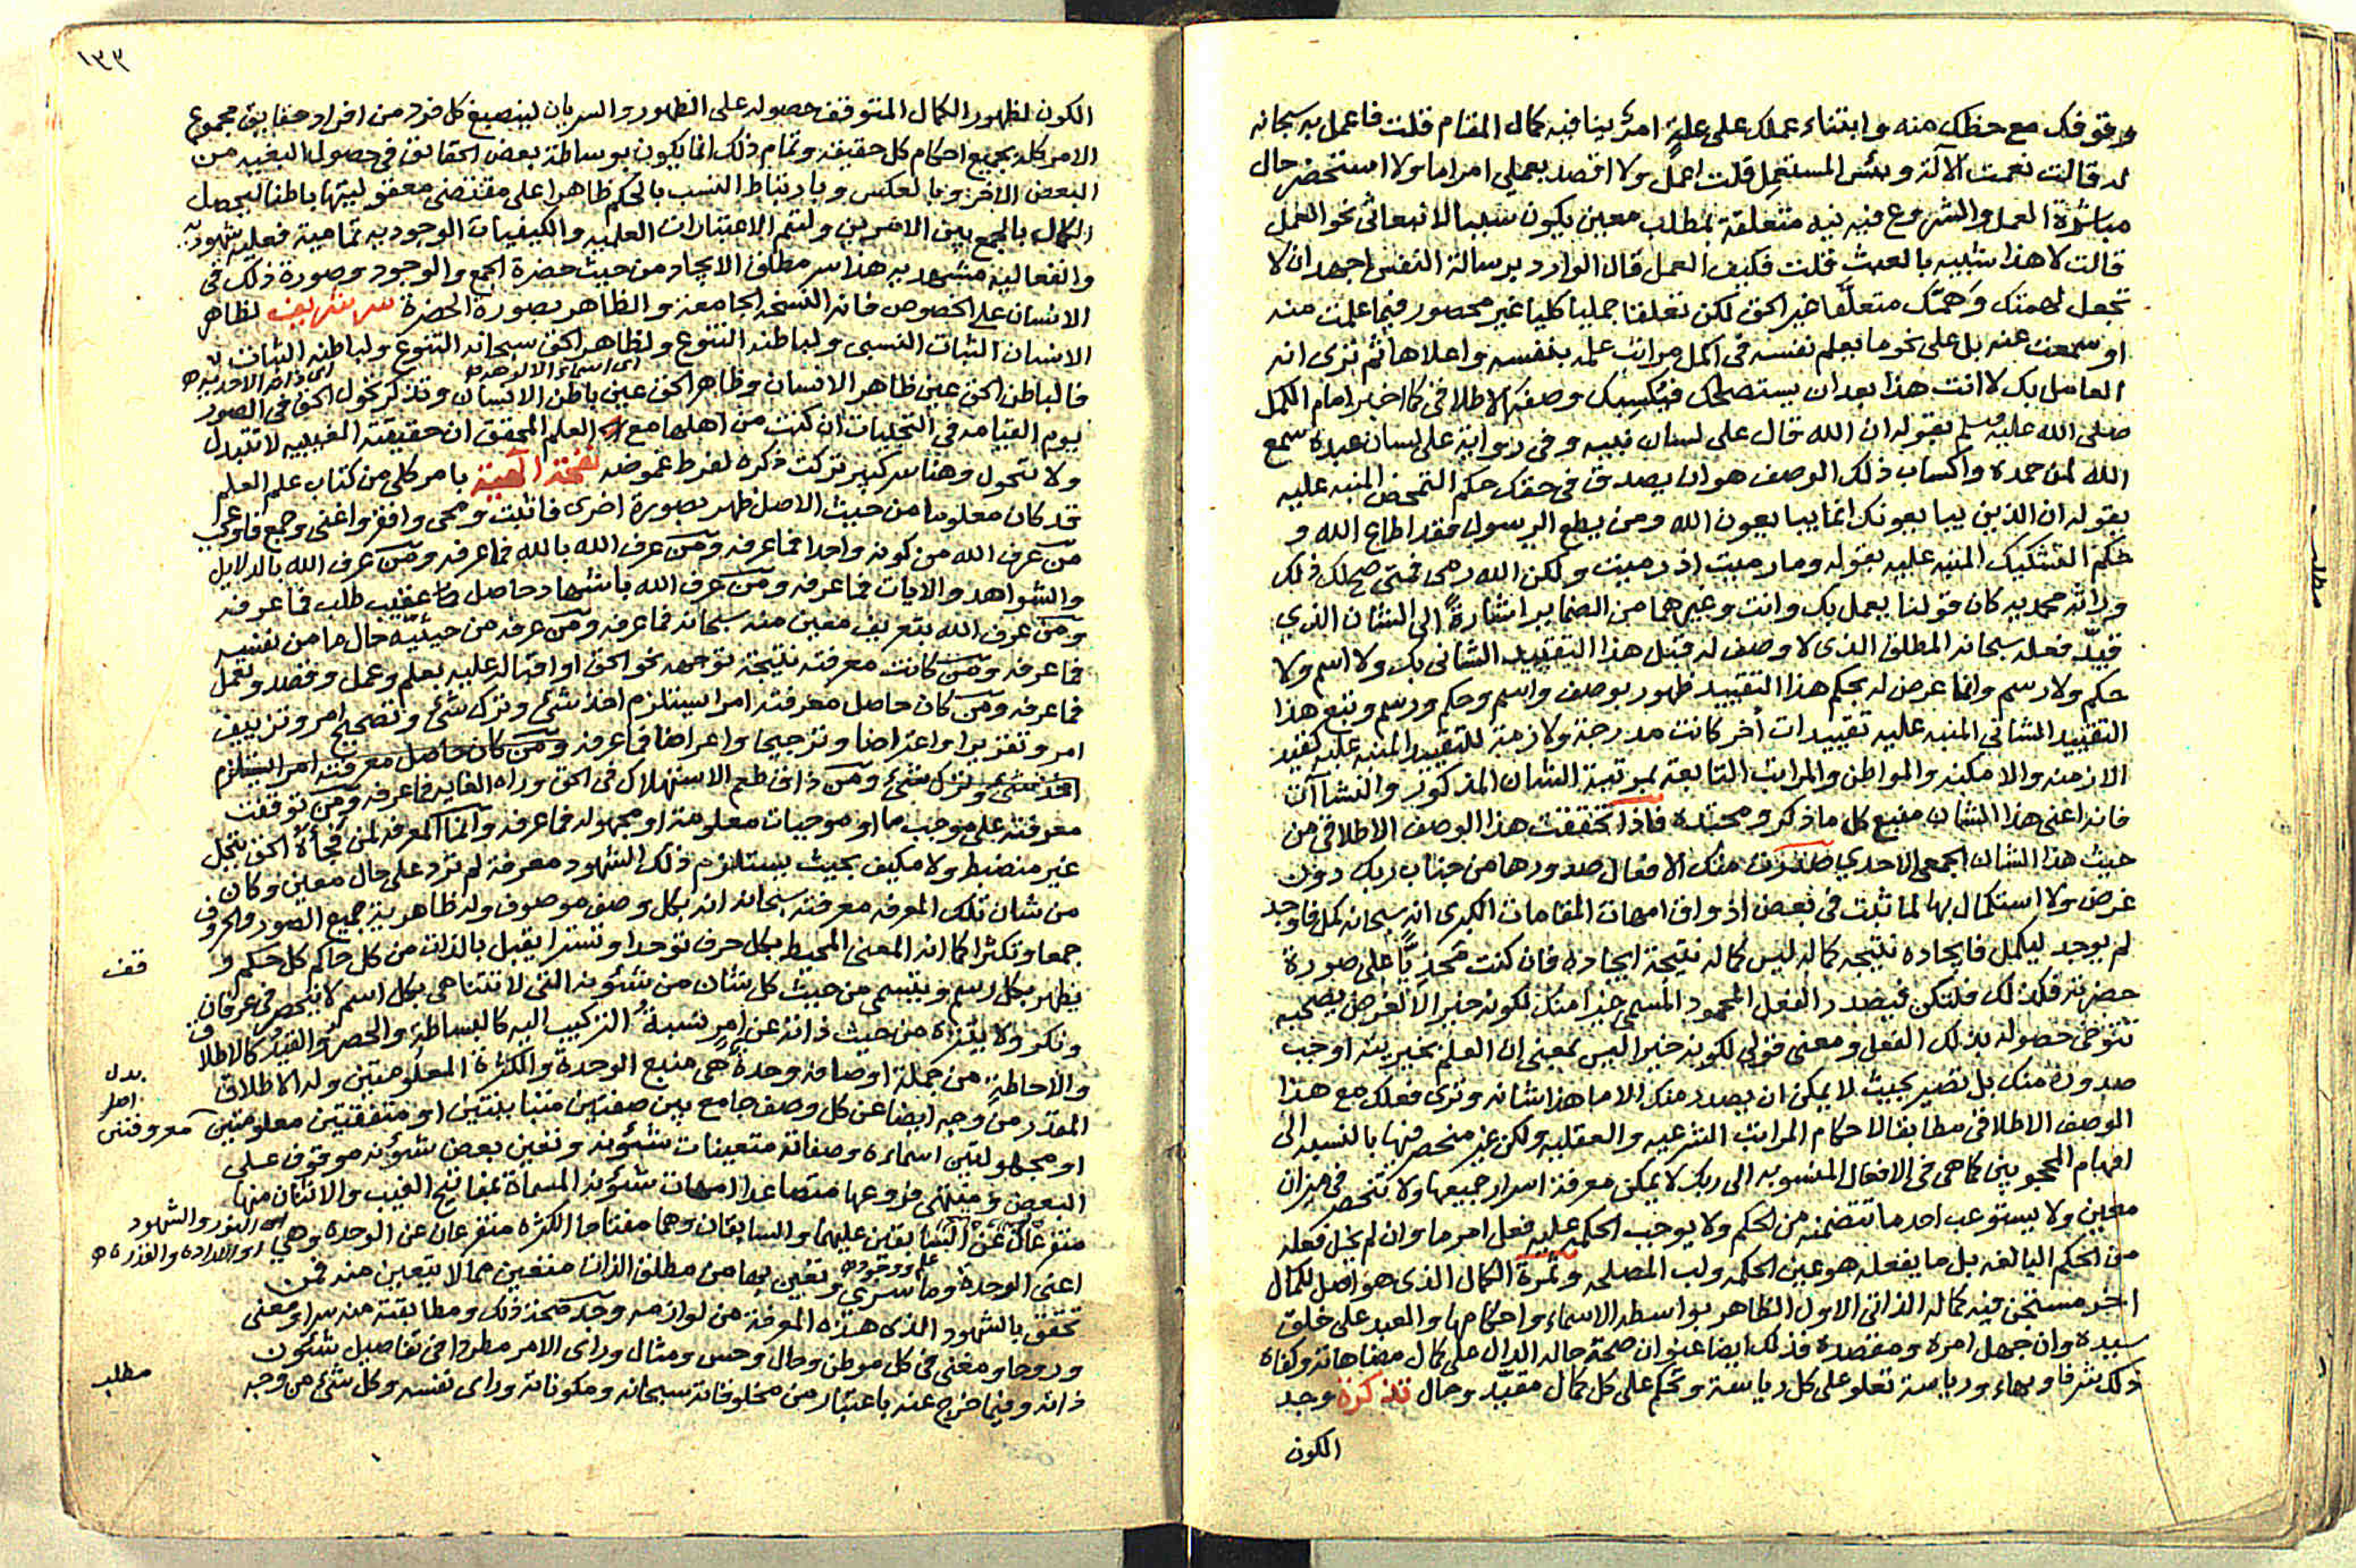 وقوفك مع حظك منه وابتناء عملك على علة امر ينافيه كمال المقام قلت فاعمل به سبحانه
له قالت نعمت الآلة وبئس المستعمل قلت اعمل ولا اقصد بعملي امرا ما ولا استحضر حال
مباشرة العمل والشروع فيه نيه متعلقة بمطلب معين يكون سببا لانبعاثي نحو العمل
قالت لا هذا شبيه بالعبث قلت فكيف العمل قال الوارد برسالة النفس اجهد ان لا
تجعل لهمتك وهمك متعلقا غير الحق لكن تعلقا جمليا كليا غير محصور فيما علمت منه
او سمعت عنه بل على نحو ما يعلم نفسه في اكمل مراتب علمه بنفسه واعلاها ثم ترى انه
العامل بك لا انت هذا بعد ان يستصلحك فيكسبك وصفه الاطلاقي كما اخبر امام الكمل
صلى الله عليه وسلم بقوله ان الله قال على لسان نبيه وفي رواية على لسان عبده سمع
الله لمن حمده واكساب ذلك الوصف هو ان يصدق في حقك حكم التمحض المنبه عليه
بقوله ان الذين يبايعونك انما يبايعون الله ومن يطع الرسول فقد اطاع الله و
حكم التشكيك المنبه عليه بقوله وما رميت اذ رميت ولكن الله رمى فمتى صح لك ذلك
وراثة محمديه كان قولنا يعمل بك وانت وغيرهما من الضماير اشارة الى الشان الذي
قيد فعله سبحانه المطلق الذى لا وصف له قبل هذا التقييد الشانى بك ولا اسم ولا
حكم ولا رسم وانما عرض له بحكم هذا التقييد ظهور بوصف واسم وحكم ورسم وتبع هذا
التقييد الشاني المنبه عليه تقييدات أخر كانت مدرجة ولازمة للتقييد المنبه عليه كقيد
الازمنه والامكنه والمواطن والمراتب التابعة لمرتبة الشان المذكور والنشآت
فانه اعنى هذا الشان منبع كل ما ذكر ومحتده فاذا تحققت هذا الوصف الاطلاقي من
حيث هذا الشان الجمعى الاحدي صدرت منك الافعال صدورها من جناب ربك دون
غرض ولا استكمال بها لما ثبت في بعض اذواق امهات المقامات الكبرى انه سبحانه كمل فاوجد
لم يوجد ليكمل فايجاده نتيجة كماله ليس كماله نتيجة ايجاده فان كنت محذيا على صورة
حضرته فكذلك فلتكن فيصدر الفعل المحمود المسمى خيرا منك لكونه خيرا لا لغرض يصحبه
تتوخى حصوله بذلك الفعل ومعنى قولي لكونه خيرا ليس بمعنى ان العلم بخيريته اوجب
صدوره منك بل تصير بحيث لا يمكن ان يصدر منك الا ما هذا شانه وترى فعلك مع هذا
الوصف الاطلاقي مطابقا لاحكام المراتب الشرعيه والعقليه ولكن غير منحصر فيها بالنسبه الى
افهام المحجوبين كما هي في الافعال المنسوبه الى ربك لا يمكن معرفة اسرار جميعها ولا تنحصر في ميزان
معين ولا يستوعب احد ما تتضمنه من الحكم ولا يوجب الحكمه عليه فعل امر ما وان لم يخل فعله
من الحكم البالغه بل ما يفعله هو عين الحكمه ولب المصلحه وثمرة الكمال الذى هو اصل لكمال
اخر مستجن فيه كماله الذاتى الاول الظاهر بواسطه الاسماء واحكامها والعبد على خلق
سيده وان جهل امره ومقصده فذلك ايضا عنوان صحة حاله الدال على كمال مضاهاته وكفاه
ذلك شرفا وبهاء ورياسة تعلو على كل رياسة وتحكم على كل كمال مقيد وحال تذكرة وجد
الكون
مطلب
١٣٣
الكون لظهور الكمال المتوقف حصوله على الظهور والسريان لينصبغ كل فرد من افراد حقايق مجموع
الامر كله بجميع احكام كل حقيقة وتمام ذلك انما يكون بوساطة بعض الحقائق في حصول البغيه من
البعض الاخر وبالعكس وبارتباط النسب بالحكم ظاهرا على مقتضى معقوليتها باطنا ليحصل
الكمال بالجمع بين الامرين ولتتم الاعتبارات العلميه والكيفيات الوجوديه تماميه فعليه شهوديه
وانفعاليه مشهديه هذا سر مطلق الايجاد من حيث حضرة الجمع والوجود وصورة ذلك في
الانسان على الخصوص فانه النسخه الجامعة والظاهر بصورة الحضرة سر شريف لظاهر
الانسان الثبات النسبى ولباطنه التنوع ولظاهر الحق سبحانه التنوع ولباطنه الثبات
اى اسماء الالوهيه
اى ذات الاحديه
فالباطن الحق عين ظاهر الانسان وظاهر الحق عين باطن الانسان وتذكر تحول الحق في الصور
يوم القيامه في التجليات ان كنت من اهلها مع العلم المحقق ان حقيقته الغيبيه لا تتبدل
ولا تتحول وهنا سر كبير تركت ذكره لفرط غموضه نفحة الهية بامر كلي من كتاب علم العلم
قد كان معلوما من حيث الاصل ظهر بصورة اخرى فاثبت ومحى وافقر واغنى وجمع فاوعى
من عرف الله من كونه واجدا فما عرفه ومن عرف الله بالله فما عرفه ومن عرف الله بالدلايل
والشواهد والايات فما عرفه ومن عرف الله باشهاد حاصل عقيب طلب فما عرفه
ومن عرف الله بتعريف معين منه سبحانه فما عرفه ومن عرفه من حيثية حال ما من نفسه
فما عرفه ومن كانت معرفته نتيجة توجهه نحو الحق او اقباله عليه بعلم وعمل وقصد وتعمل
فما عرفه ومن كان حاصل معرفته امرا يستلزم اخذ شئ وترك شئ وتصحيح امر وتزييف
امر وتقريرا واعتراضا وترجيحا واعراضا فما عرفه ومن كان حاصل معرفته امرا يستلزم
اخذ شئ وترك شئ ومن ذاق طعم الاستهلاك في الحق وراه الغايه فما عرفه ومن توقفت
معرفته على موجب ما او موجبات معلومة او مجهوله فما عرفه وانما المعرفه لمن فجأه الحق بتجل
غير منضبط ولا مكيف بحيث يستلزم ذلك الشهود معرفة لم ترد على حال معين وكان
من شان تلك المعرفه معرفته سبحانه انه بكل وصف موصوف وله ظاهرية جميع الصور والحروف
جمعا وتكثرا كما انه المعنى المحيط بكل حرف توحدا وتسترا يقبل بالذات من كل حاكم كل حكم و
يظهر بكل رسم ويتسمى من حيث كل شان من شئونه التى لا تتناهى بكل اسم لا ينحصر في عرفان
ونكر ولا يتنزه من حيث ذاته عن امر نسبة التركيب اليه كالبساطة والحصر والقيد كالاطلاق
والاحاطة من جملة اوصافه وحدة هي منبع الوحدة والكثرة المعلومتين وله الاطلاق
المقدر من وجه ايضا عن كل وصف جامع بين صفتين متباينتين او متفقتين معلومتين
او مجهولتين اسماءه وصفاته متعينات شئونه وتعين بعض شؤنه موقوف على
البعض وينتهى فروعها متصاعدا لامهات شئونه المسماة بمفاتيح الغيب والاثنان منها
متفرعان عن السابقين عليهما والسابقان وهما مفتاحا الكثره متفرعان عن الوحده وهي
اعنى الوحدة وما سرى وتعين بها من مطلق الذات متعين مما لا يتعين منه فمن
تحقق بالشهود الذى هذه المعرفة من لوازمه وجد صحة ذلك ومطابقته منه سرا ومعنى
وروحا ومغنى في كل موطن وحال وحس ومثال وراى الامر مطردا في تفاصيل شئون
ذاته وفيما خرج عنه باعتبار من مخلوقاته سبحانه ومكوناته وراى نفسه وكل شئ من وجه
قف
بدل
اصل
معروفتين
اى النور والشهود
او الاراده والقدره
علم ووجود
مطلب